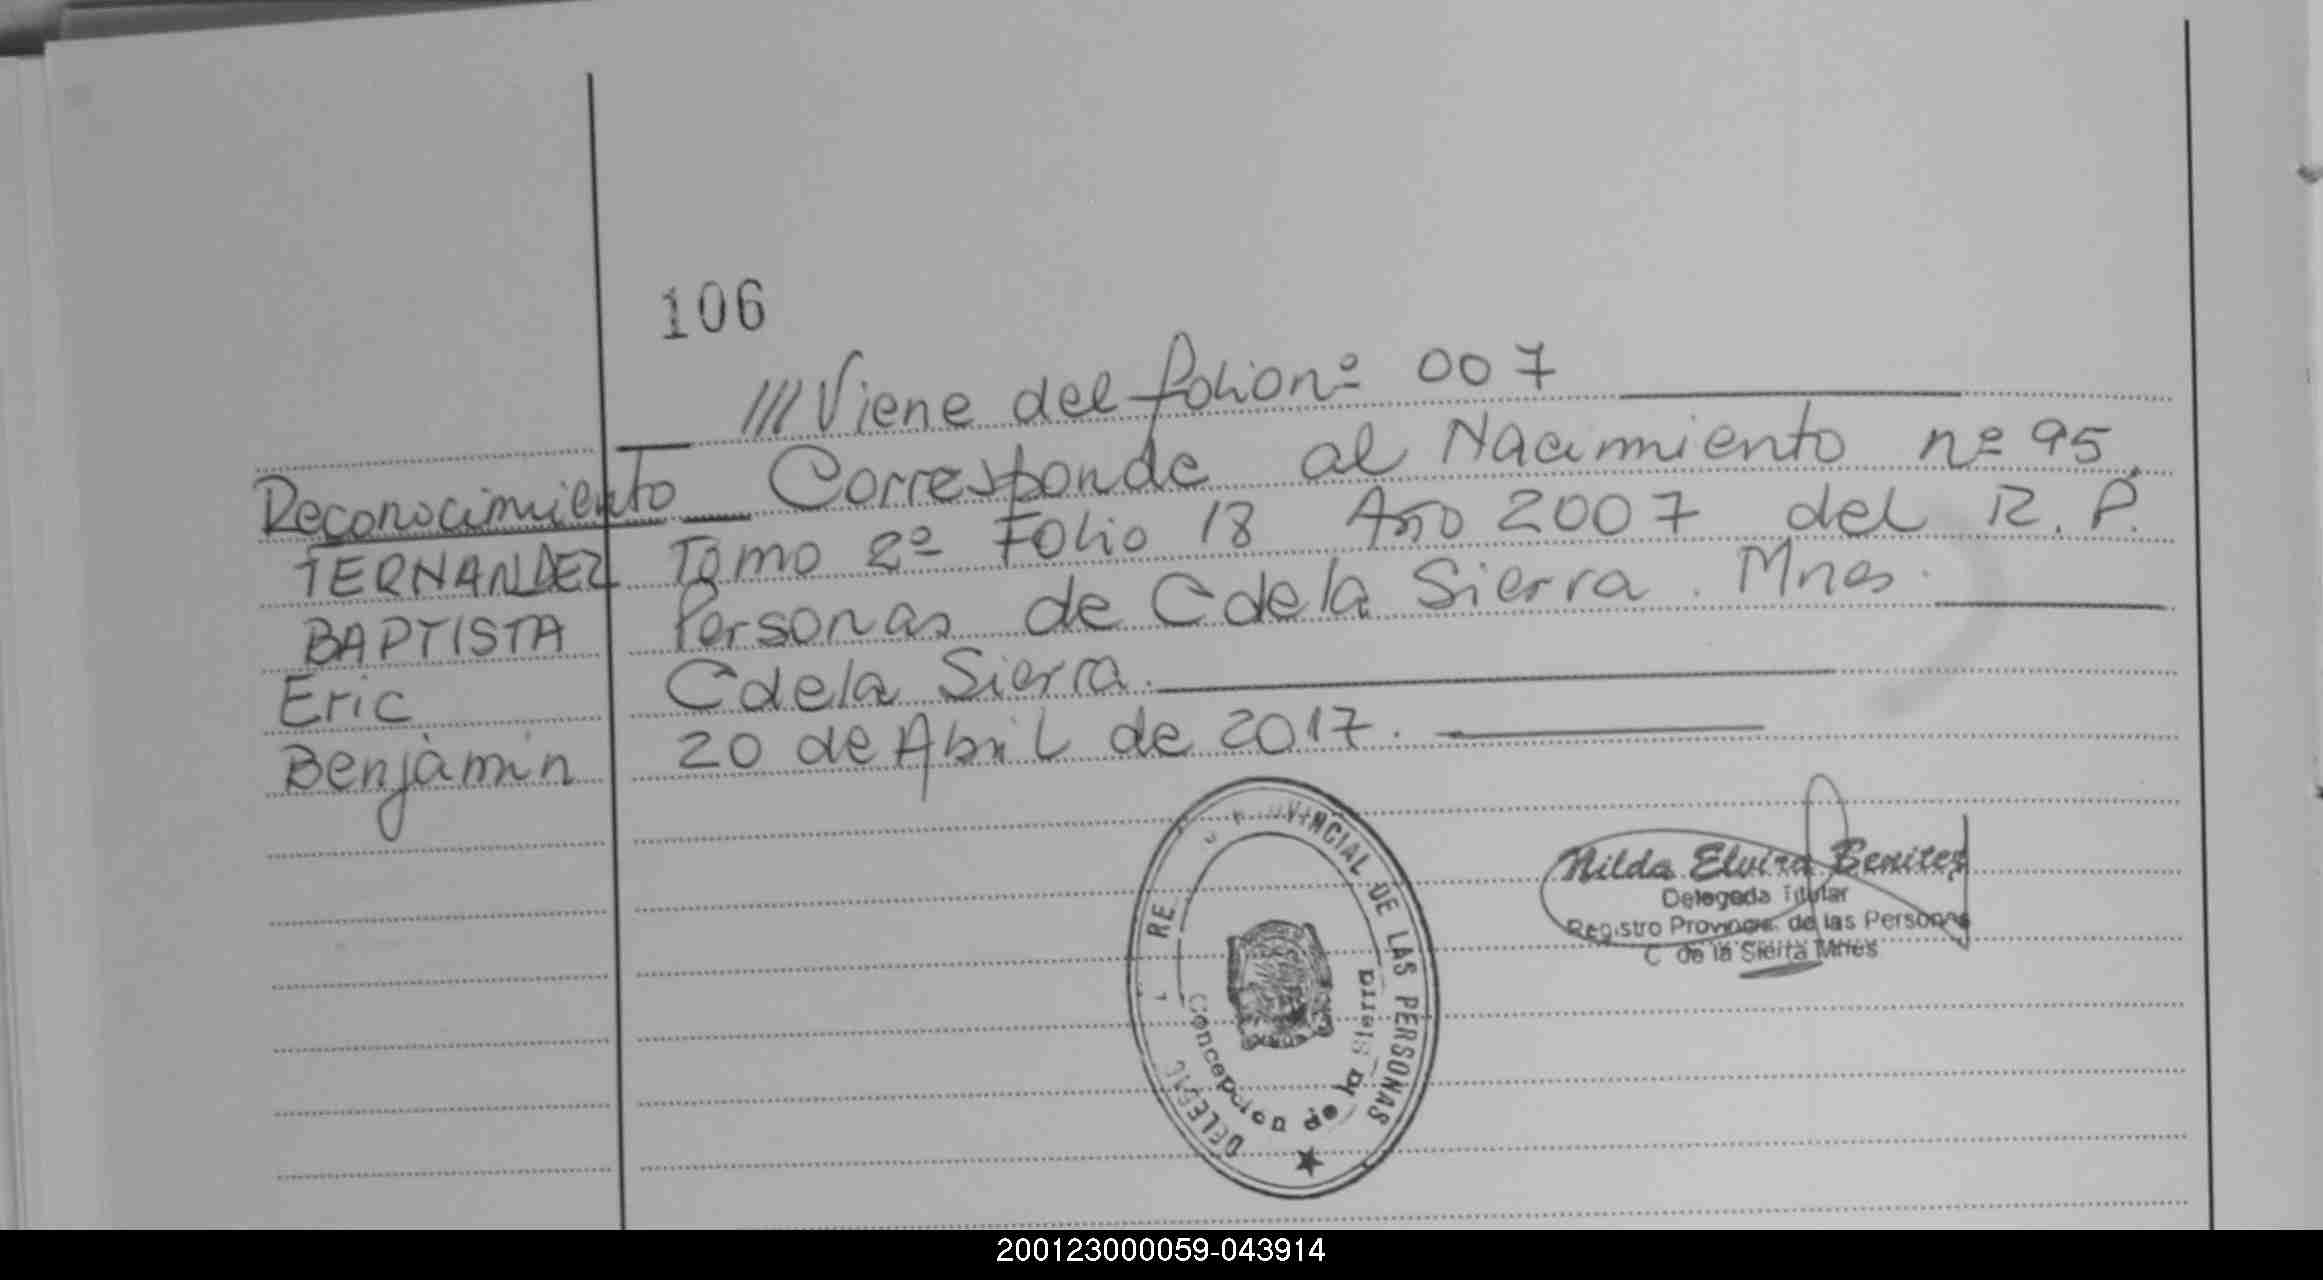 106
///Viene del folio nº 007
Reconocimiento
Corresponde al Nacimiento nº 95.
FERNANDEZ
Tomo 2º Folio 18 Año 2007 del R. P.
BAPTISTA
Personas de C de la Sierra. Mnes.
Eric
C de la Sierra.
Benjamin
20 de Abril de 2017.
PROVINCIAL DE LAS PERSONAS
Concepcion de la Sierra
Nilda Elvira Benitez
Delegada Titular
Registro Provincial de las Personas
C de la Sierra Mnes
200123000059-043914